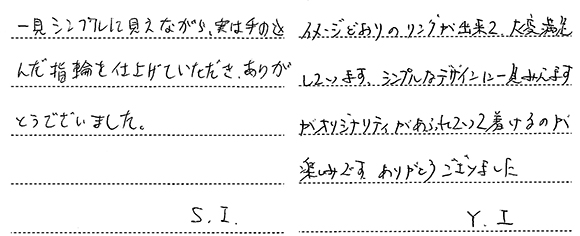 一見シンプルに見えながら、実は手のこ
んだ指輪を仕上げていただき、ありが
とうございました。
S.I.
イメージどおりのリングが出来て、大変満足
しています。シンプルなデザインに一見みえます
がオリジナリティがあふれていて着けるのが
楽しみです ありがとうございました
Y.I